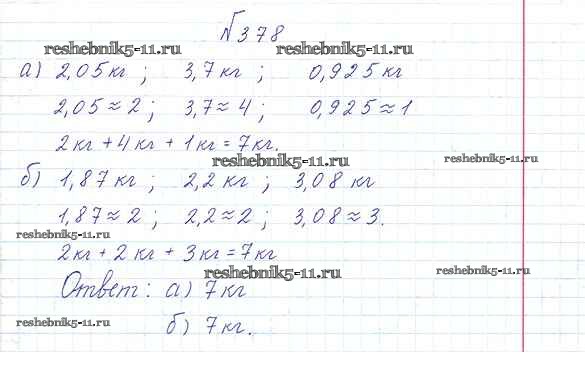 №378
reshebnik5-11.ru reshebnik5-11.ru
а) 2,05 кг ; 3,7 кг ; 0,925 кг
2,05 ≈ 2 ; 3,7 ≈ 4 ; 0,925 ≈ 1
2 кг + 4 кг + 1 кг = 7 кг.
reshebnik5-11.ru reshebnik5-11.ru
б) 1,87 кг ; 2,2 кг ; 3,08 кг
1,87 ≈ 2 ; 2,2 ≈ 2 ; 3,08 ≈ 3.
reshebnik5-11.ru
2 кг + 2 кг + 3 кг = 7 кг
reshebnik5-11.ru reshebnik5-11.ru
Ответ : а) 7 кг
reshebnik5-11.ru
б) 7 кг.